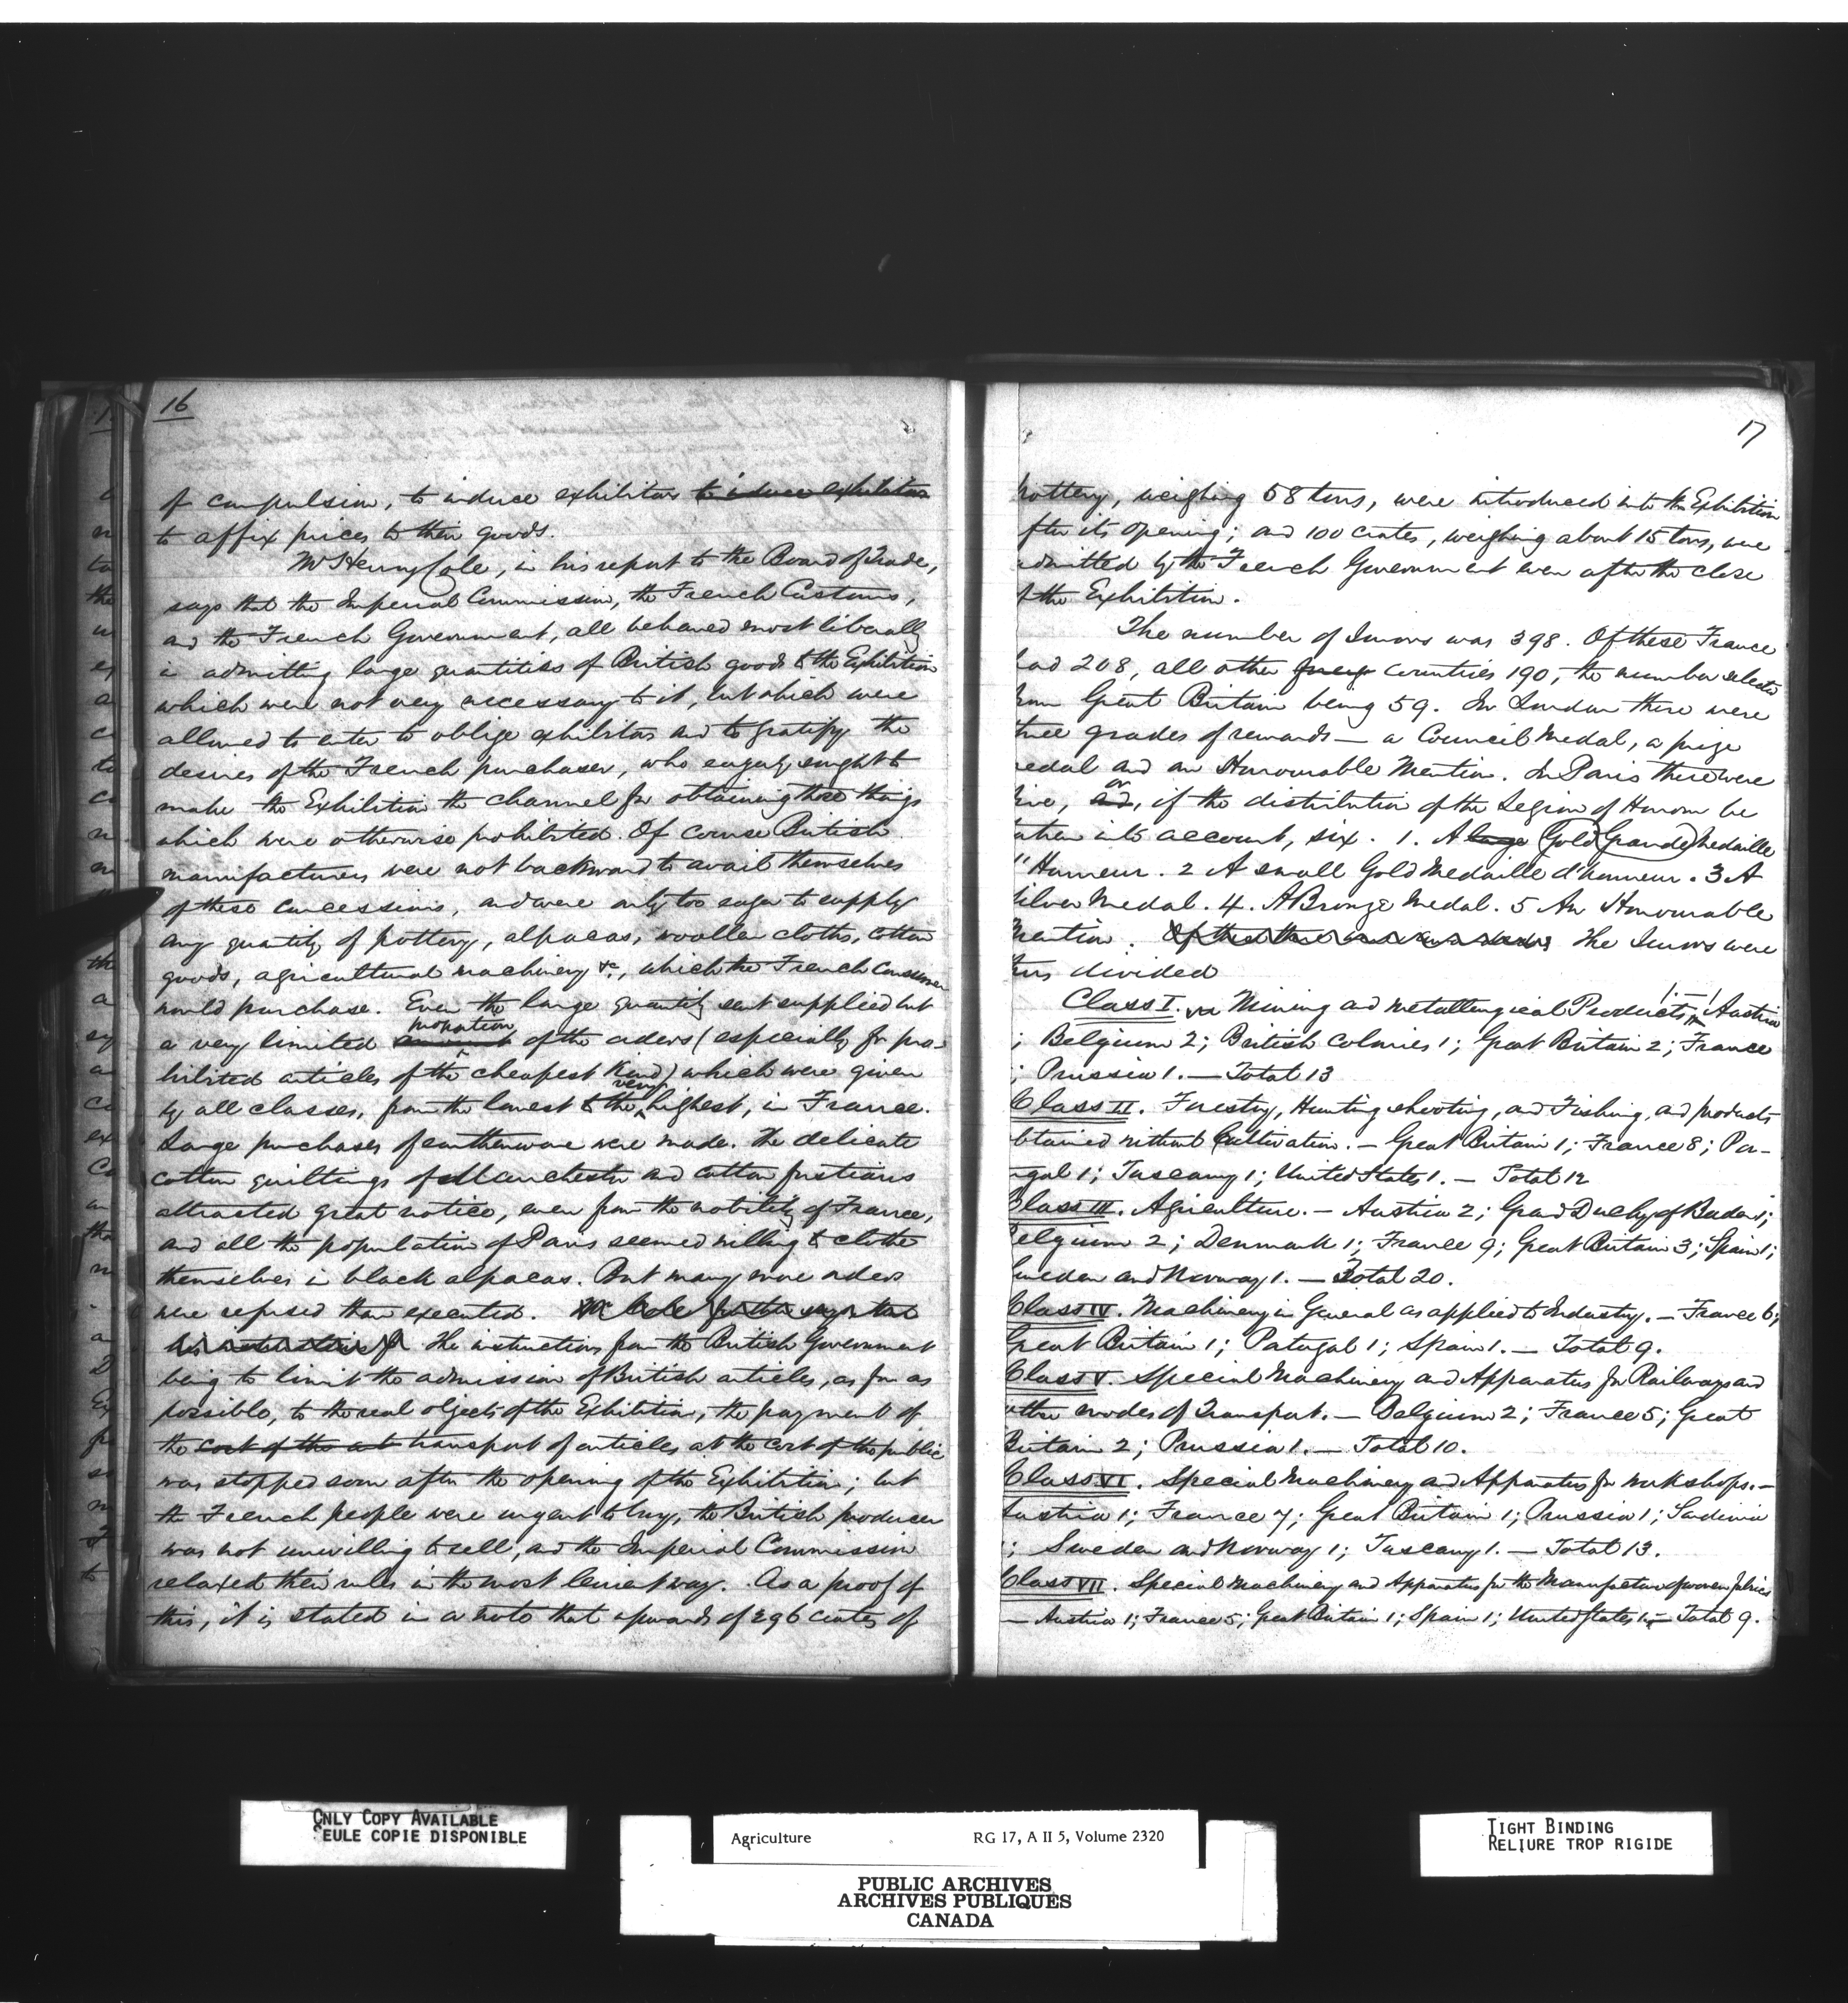 16
of compulsion, to induce exhibitors to induce exhibitors
to affix prices to their goods.
Mr Henry Cole, in his report to the Board of Trade,
says that the Imperial Commission, the French Customs,
and the French Government, all behaved most liberally
in admitting large quantities of British goods to the Exhibition
which were not very necessary to it, but which were
allowed to enter to oblige exhibitors and to gratify the
desires of the French purchaser, who eagerly sought to
make the Exhibition the channel for obtaining those things
which were otherwise prohibited. Of course British
manufacturers were not backward to avail themselves
of these concessions, and were only too eager to supply
any quantity of pottery, alpacas, woollen cloths, cotton
goods, agricultural machinery &c., which the French consumer
would purchase. Even the large quantity sent supplied but
a very limited proportion of the orders (especially for pro-
hibited articles of the cheapest kind) which were given
by all classes, from the lowest to the very highest, in France.
Large purchases of earthenware were made. The delicate
cotton quiltings of Manchester and cotton fustians
attracted great notice, even from the nobility of France,
and all the population of Paris seemed willing to clothe
themselves in black alpacas. But many more orders
were refused than executed. Mr Cole further says that
his instructions fr The instructions from the British Government
being to limit the admission of British articles, as far as
possible, to the real objects of the Exhibition, the payment of
the cost of the art transport of articles at the cost of the public
was stopped soon after the opening of the Exhibition; but
the French people were urgent to buy, the British producer
was not unwilling to sell, and the Imperial Commission
relaxed their rules in the most lenient way. As a proof of
this, it is stated in a note that upwards of 296 crates of
17
pottery, weighing 58 tons, were introduced into the Exhibition
fter its opening; and 100 crates, weighing about 15 tons, were
admitted by the French Government even after the close
f the Exhibition.
The number of Jurors was 398. Of these France
had 208, all other countries 190, the number selected
from Great Britain being 59. In London there were
three grades of rewards — a Council Medal, a prize
medal and an Honourable Mention. In Paris there were
five, and or, if the distribution of the Legion of Honour be
taken into account, six. 1. A large Gold (Grande) Medaille
d'Honneur. 2 A small Gold Medaille d'honneur. 3 A
silver Medal. 4. A Bronze Medal. 5 An Honourable
Mention. The Jurors were
thus divided
Class I. Mining and Metallurgical Products. — Austria
; Belgium 2; British Colonies 1; Great Britain 2; France
; Prussia 1. — Total 13
Class II. Forestry, Hunting, shooting, and Fishing, and products
btained without Cultivation. — Great Britain 1; France 8; Por-
tugal 1; Tuscany 1; United States 1. — Total 12
Class III. Agriculture. — Austria 2; Grand Duchy of Baden 1;
Belgium 2; Denmark 1; France 9; Great Britain 3; Spain 1;
Sweden and Norway 1. — Total 20.
Class IV. Machinery in General as applied to Industry. — France 6;
Great Britain 1; Portugal 1; Spain 1. — Total 9.
Class V. Special Machinery and Apparatus for Railways and
other modes of Transport. — Belgium 2; France 5; Great
Britain 2; Prussia 1. — Total 10.
Class VI. Special Machinery and Apparatus for workshops. —
Austria 1; France 7; Great Britain 1; Prussia 1; Sardinia
1; Sweden and Norway 1; Tuscany 1. — Total 13.
Class VII. Special Machinery and Apparatus for the Manufacture of woven fabrics
— Austria 1; France 5; Great Britain 1; Spain 1; United States 1. — Total 9.
ONLY COPY AVAILABLE
SEULE COPIE DISPONIBLE
Agriculture RG 17, A II 5, Volume 2320
PUBLIC ARCHIVES
ARCHIVES PUBLIQUES
CANADA
TIGHT BINDING
RELIURE TROP RIGIDE